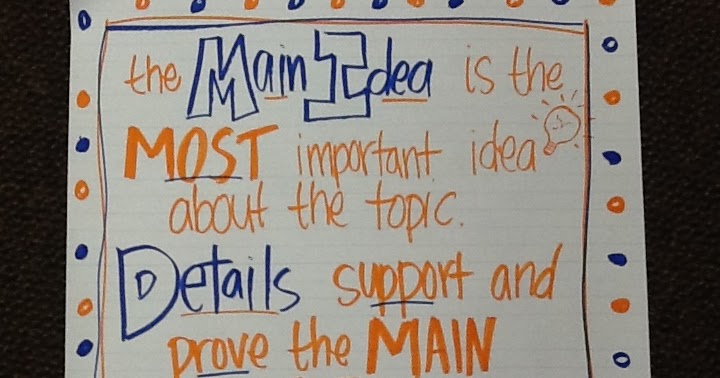 the Main Idea is the
MOST important idea
about the topic.
Details support and
prove the MAIN